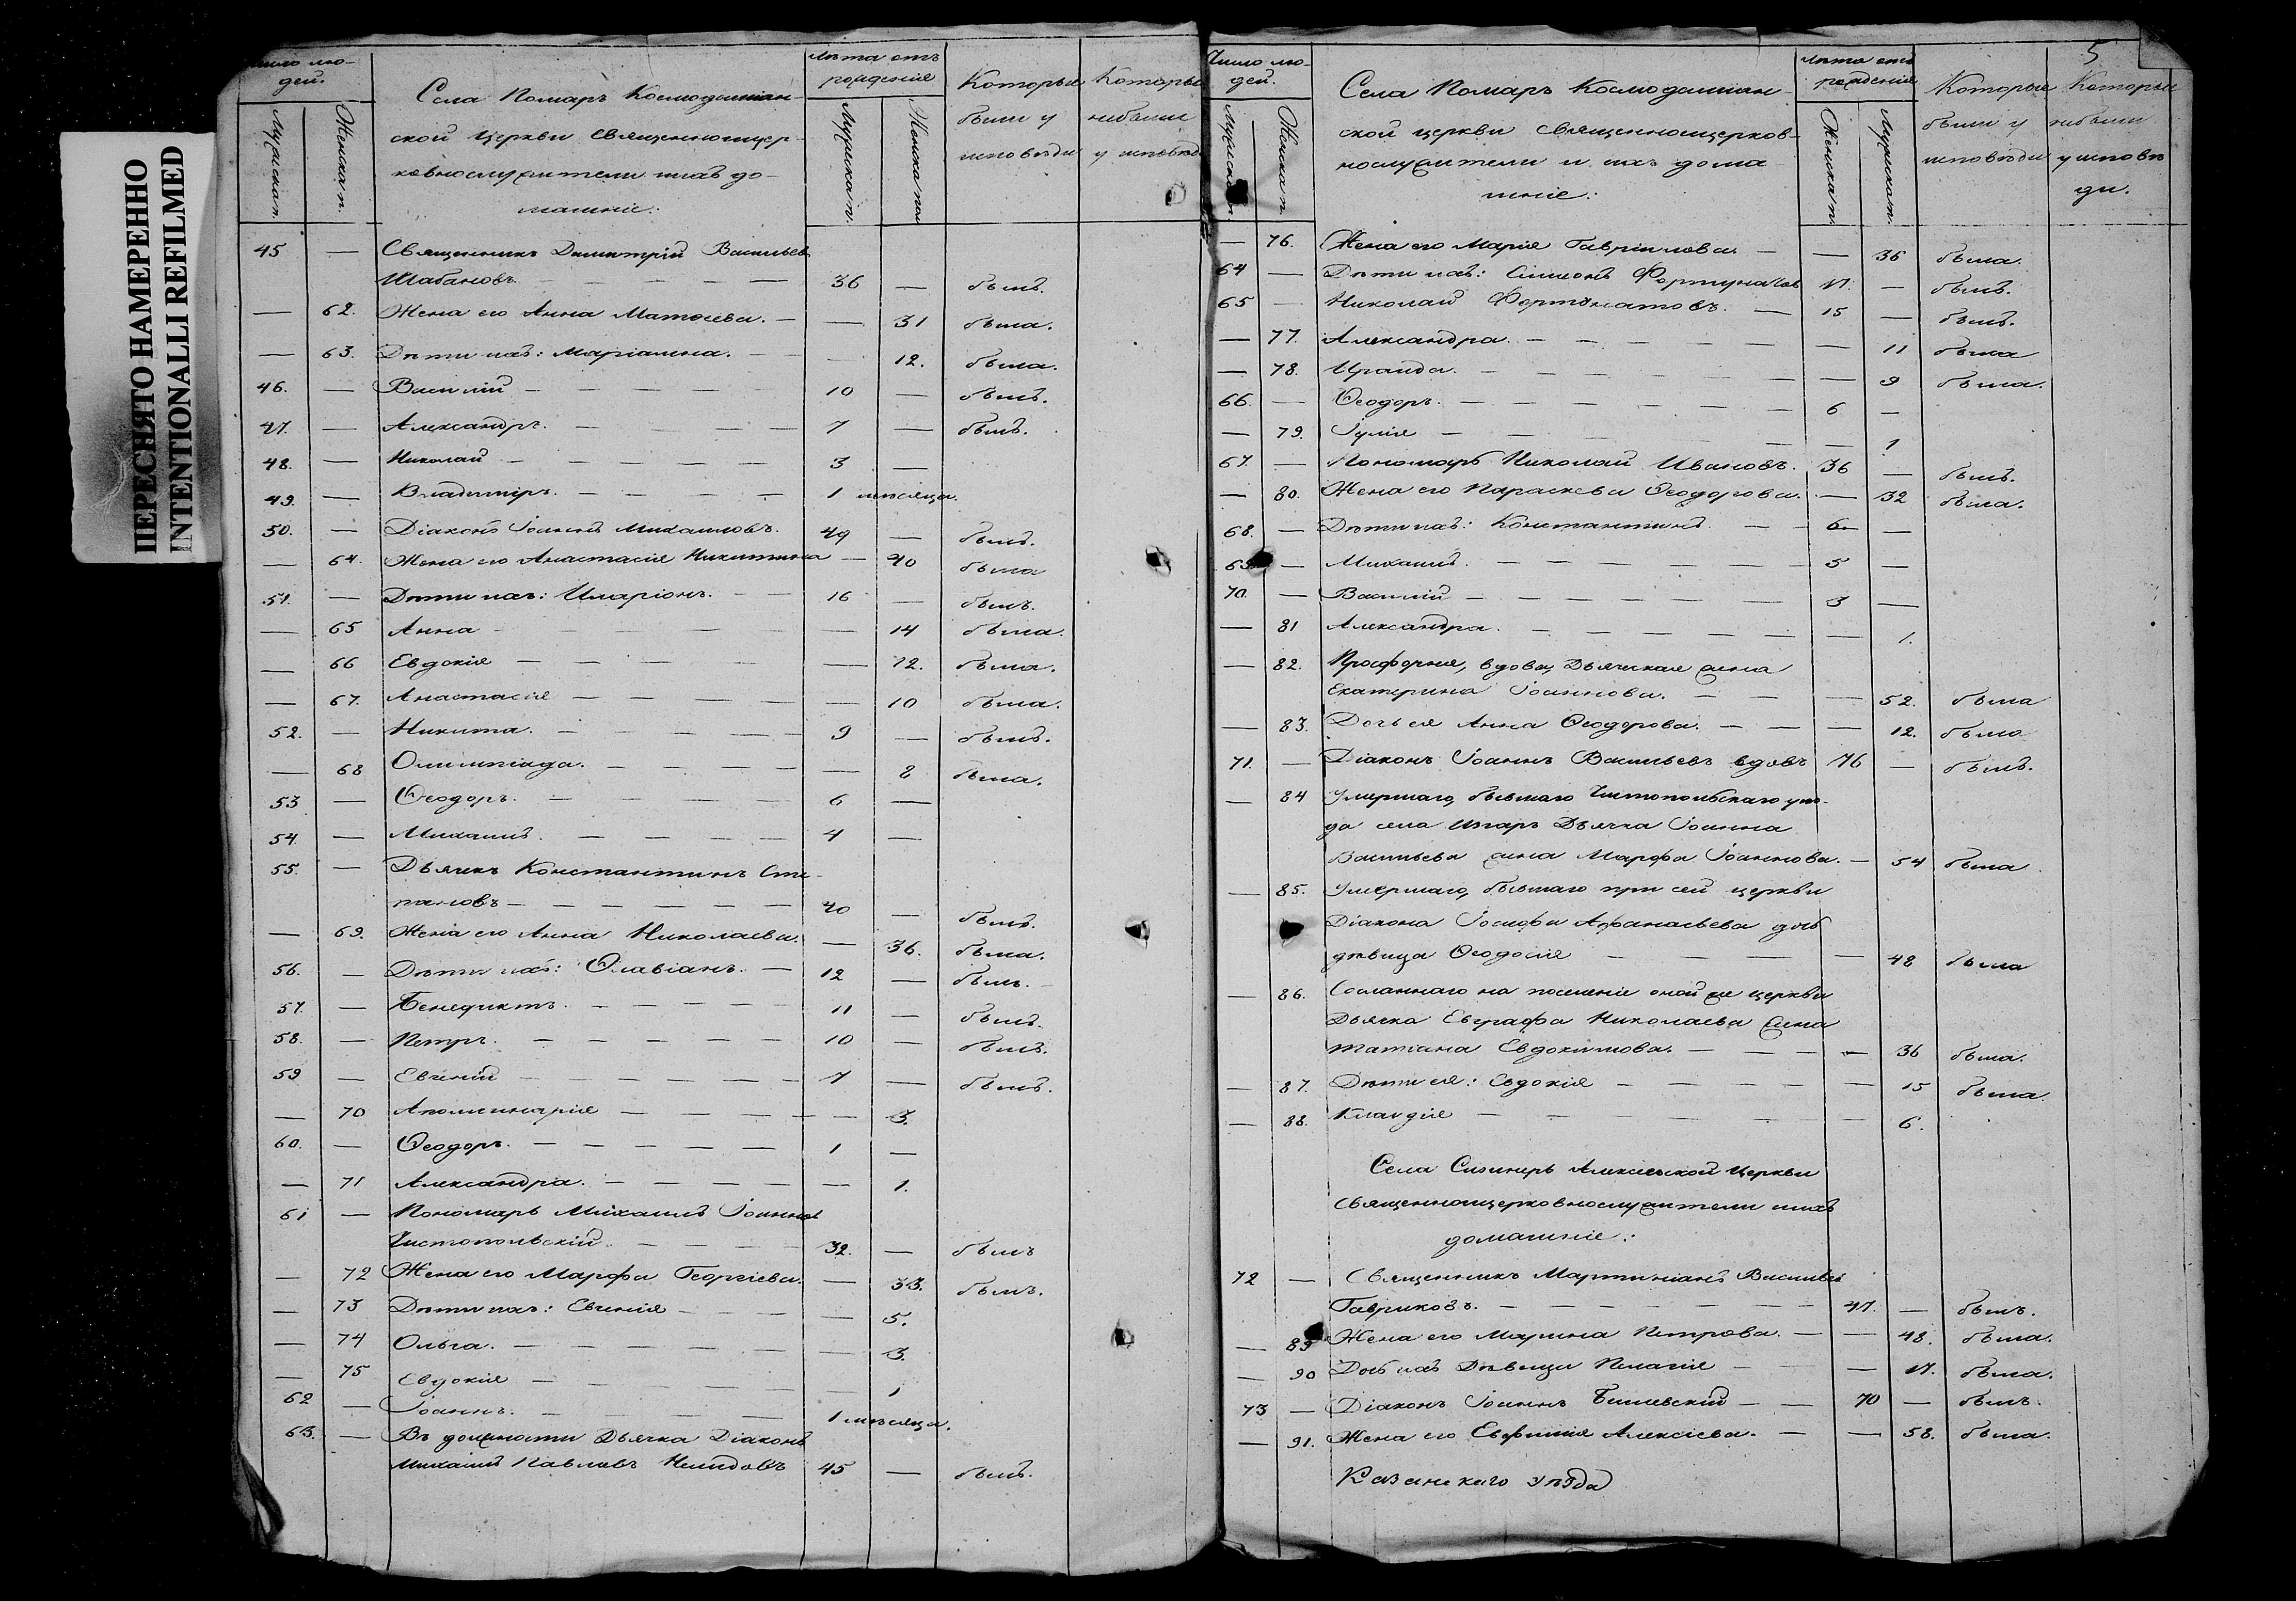 ПЕРЕСНЯТО НАМЕРЕННО
INTENTIONALLI REFILMED
Число лю-
дей.
Мужска п.
Женска п.
Села Помаръ Космодамиан-
ской церкви священноцер-
ковнослужители и ихъ до-
машніе:
Лѣта отъ
рожденія
Мужска п.
Женска пол
Которые
были у
исповѣди
Которые
небыли
у исповѣд
45 — Священникъ Димитрій Васильевъ
Шабановъ. — 36 — былъ.
— 62. Жена его Анна Матвѣева. — — 31 была.
— 63. Дѣти ихъ: Маріамна. — — 12. была.
46. — Василій — 10 — былъ.
47. — Александръ. — 7 — былъ.
48. — Николай — 3 —
49. — Владиміръ. — 1 мѣсяца.
50. — Діаконъ Іоаннъ Михаиловъ. 49 — былъ.
— 64. Жена его Анастасія Никитина — 40 была
51. — Дѣти ихъ: Иларіонъ. — 16 — былъ.
— 65 Анна — — 14 была.
— 66 Евдокія — — 12. была.
— 67. Анастасія — — 10 была.
52. — Никита. — 9 — былъ.
— 68 Олимпіада. — — 8 была.
53 — Ѳеодоръ. — 6 —
54. — Михаилъ. — 4 —
55. — Дьячикъ Константинъ Сте-
пановъ — 40 — былъ.
— 69. Жена его Анна Николаева. — 36. была.
56. — Дѣти ихъ: Флавіанъ. — 12 — былъ.
57. — Бенедиктъ. — 11 — былъ.
58. — Петръ. — 10 — былъ.
59 — Евгеній — 7 — былъ.
— 70 Аполлинарія — — 3.
60. — Ѳеодоръ. — 1 —
— 71 Александра. — — 1.
61 — Пономарь Михаилъ Іоанновъ
Чистопольскій. — 32. — былъ
— 72 Жена его Марфа Георгіева. — 33. былъ.
— 73 Дѣти ихъ: Евгенія — — 5.
— 74 Ольга. — — 3.
— 75 Евдокія — — 1
62 — Іоаннъ. — 1 мѣсяца.
63. — Въ должности Дьячка Діаконъ
Михаилъ Павловъ Нелидовъ 45 — былъ.
5
Число лю-
дей.
Мужска п.
Женска п.
Села Помаръ Космодамиан-
ской церкви священноцерков-
нослужители и ихъ дома
шніе:
Лѣта отъ
рожденія
Женска п.
Мужска п.
Которые
были у
исповѣди
Которые
небыли
у исповѣ
ди.
— 76. Жена его Марія Гавріилова. — — 36 была.
64 — Дѣти ихъ: Симеонъ Фортунатов 17. — былъ.
65 — Николай Фортунатовъ. — 15 — былъ.
— 77. Александра. — — 11 была
— 78. Ираида. — — 9 была.
66. — Ѳеодоръ. — 6 —
— 79. Іулія — — 1
67. — Пономарь Николай Ивановъ. 36 — былъ.
— 80. Жена его Параскева Ѳеодорова. — 32 была.
68. — Дѣти ихъ: Константинъ. — 6. —
69 — Михаилъ. — 5 —
70. — Василій — 3 —
— 81 Александра. — — 1.
— 82. Просфорня, вдова, Дьяческая жена
Екатерина Іоаннова. — — 52. была
— 83. Дочь ея Анна Ѳеодорова. — — 12. была
71. — Діаконъ Іоаннъ Васильевъ вдовъ 76 — былъ.
— 84 Умершаго, бывшаго Чистопольскаго уѣз-
да села Дьячка Іоанна
Васильева жена Марфа Іоаннова. — 54 была
— 85. Умершаго, бывшаго при сей церкви
Діакона Іосифа Афанасьева дочь
дѣвица Ѳеодосія — — 48 была
— 86. Сосланнаго на поселеніе оной же церкви
Дьячка Евграфа Николаева жена
Татіана Евдокимова. — — 36 была.
— 87. Дѣти ея: Евдокія — — 15 была.
— 88. Клавдія — — 6.
Села Сизнеръ Алексіевской церкви
священноцерковнослужители и ихъ
домашніе:
72 — Священникъ Мартиніанъ Васильев
Гавриковъ. — 47. — былъ.
— 89 Жена его Марина Петрова. — — 48. была.
— 90 Дочь ихъ Дѣвица Пелагія — — 17. была.
73 — Діаконъ Іоаннъ Бишевскій — 70 — былъ.
— 91. Жена его Евфимія Алексіева. — — 58. была.
Казанскаго уѣзда